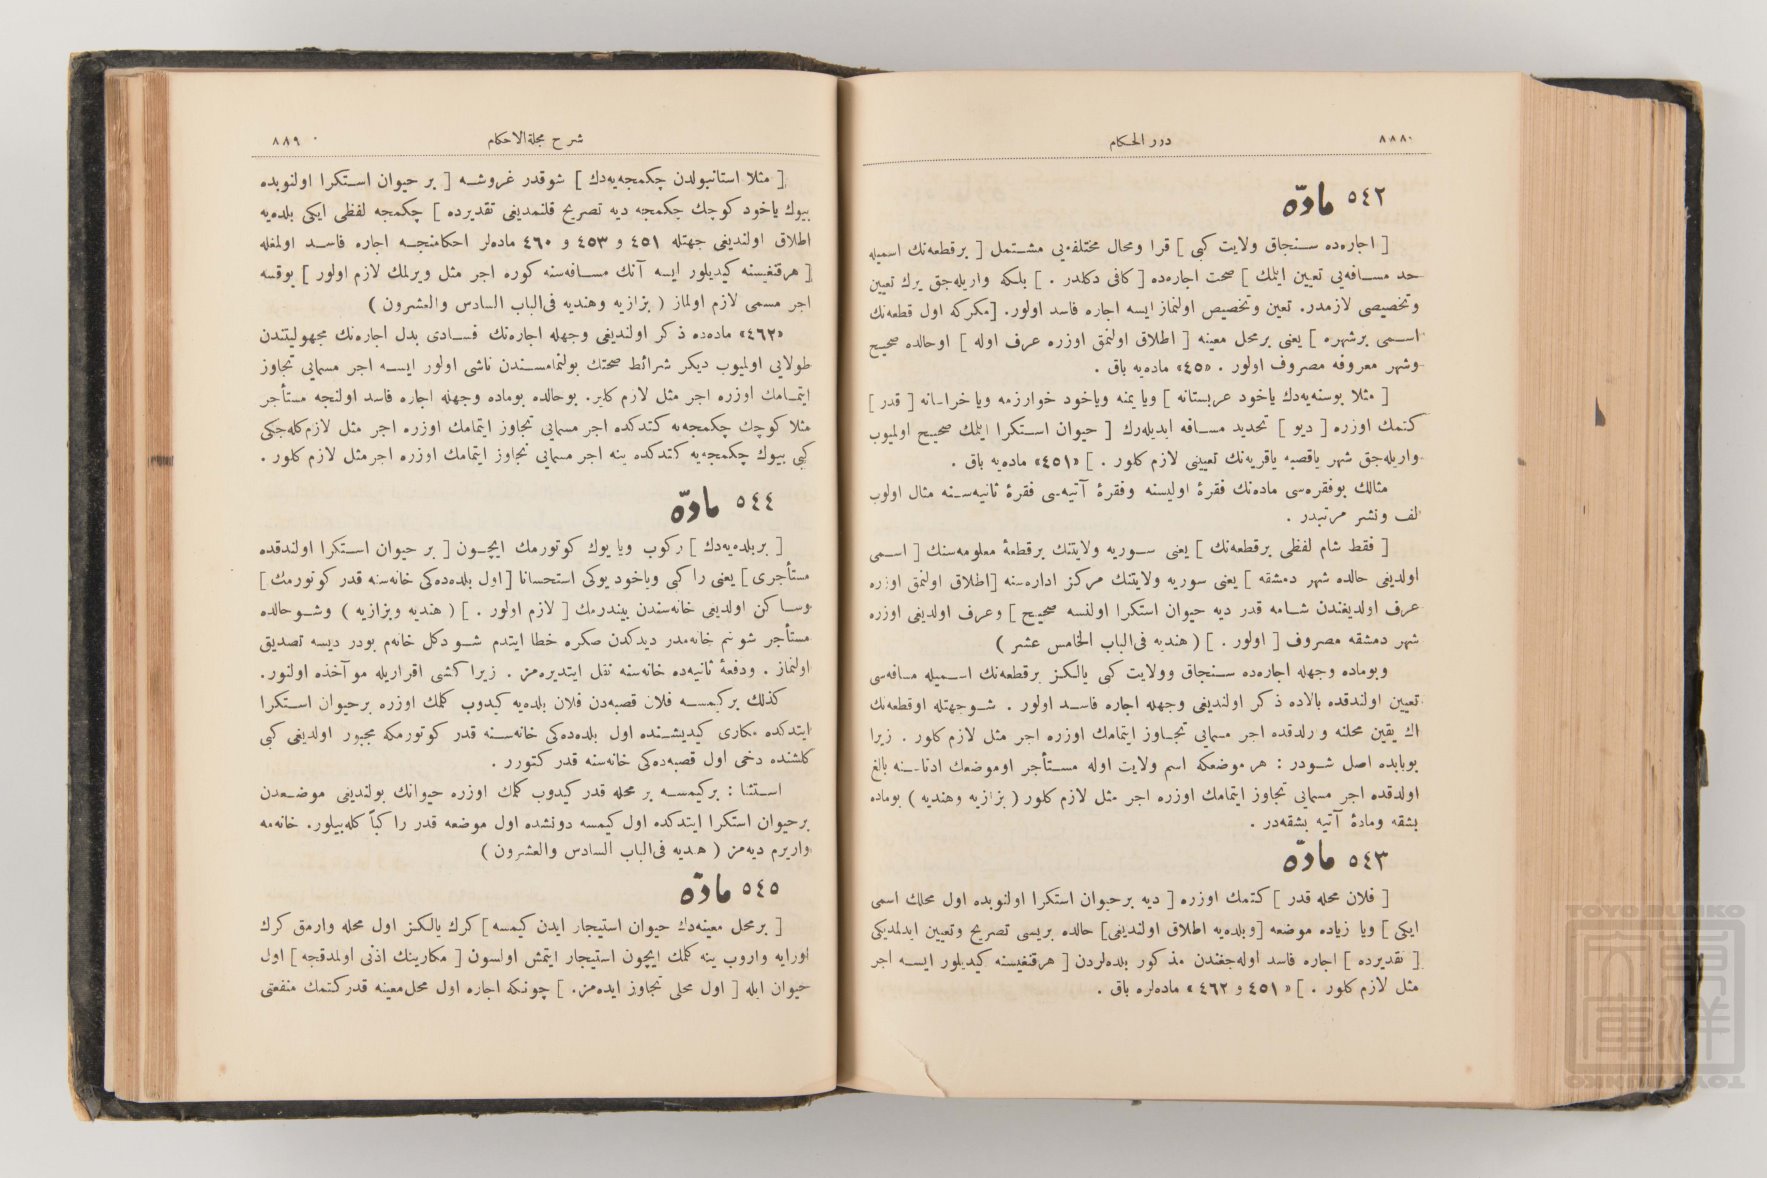 ٨٨٨
درر الحكام
٥٤٢ مادّه
[ اجاره‌ده سنجاق ولايت كبى ] قرا ومحال مختلفه‌يى مشتمل [ برقطعه‌نك اسميله
حد مسافه‌يى تعيين ايتمك ] صحت اجاره‌ده [ كافى دكلدر . ] بلكه واريله‌جق يرك تعيين
وتخصيصى لازمدر. تعيين وتخصيص اولنماز ايسه اجاره فاسد اولور. [مكركه اول قطعه‌نك
اسمى برشهره ] يعنى برمحل معينه [ اطلاق اولنمق اوزره عرف اوله ] اوحالده صحيح
وشهر معروفه مصروف اولور . «٤٥» ماده‌يه باق .
[ مثلا بوسنه‌يه‌دك ياخود عربستانه ] ويا يمنه وياخود خوارزمه ويا خراسانه [ قدر ]
كتمك اوزره [ ديو ] تحديد مسافه ايديله‌رك [ حيوان استكرا ايتمك صحيح اولميوب
واريله‌جق شهر ياقصبه ياقريه‌نك تعيينى لازم كلور . ] «٤٥١» ماده‌يه باق .
مثالك بوفقره‌سى ماده‌نك فقرۀ اوليسنه وفقرۀ آتيه‌سى فقرۀ ثانيه‌سنه مثال اولوب
لف ونشر مرتبدر .
[ فقط شام لفظى برقطعه‌نك ] يعنى سوريه ولايتنك برقطعۀ معلومه‌سنك [ اسمى
اولديغى حالده شهر دمشقه ] يعنى سوريه ولايتنك مركز اداره‌سنه [اطلاق اولنمق اوزره
عرف اولديغندن شامه قدر ديه حيوان استكرا اولنسه صحيح ] وعرف اولديغى اوزره
شهر دمشقه مصروف [ اولور . ] ( هنديه فى‌الباب الخامس عشر )
وبوماده وجهله اجاره‌ده سنجاق وولايت كبى يالكز برقطعه‌نك اسميله مسافه‌سى
تعيين اولندقده بالاده ذكر اولنديغى وجهله اجاره فاسد اولور . شوجهتله اوقطعه‌نك
اك يقين محلنه ورلدقده اجر مسمايى تجاوز ايتمامك اوزره اجر مثل لازم كلور . زيرا
بوبابده اصل شودر : هر موضعكه اسم ولايت اوله مستأجر اوموضعك ادناسنه بالغ
اولدقده اجر مسمايى تجاوز ايتمامك اوزره اجر مثل لازم كلور ( بزازيه وهنديه ) بوماده
بشقه ومادۀ آتيه بشقه‌در .
٥٤٣ مادّه
[ فلان محله قدر ] كتمك اوزره [ ديه برحيوان استكرا اولنوبده اول محلك اسمى
ايكى ] ويا زياده موضعه [وبلده‌يه اطلاق اولنديغى] حالده بريسى تصريح وتعيين ايدلمديكى
[ تقديرده ] اجاره فاسد اوله‌جغندن مذكور بلده‌لردن [ هرقنغيسنه كيديلور ايسه اجر
مثل لازم كلور . ] « ٤٥١ و ٤٦٢ » ماده‌لره باق .
شرح مجلةالاحكام
٨٨٩
[ مثلا استانبولدن چكمجه‌يه‌دك ] شوقدر غروشه [ بر حيوان استكرا اولنوبده
بيوك ياخود كوچك چكمجه ديه تصريح قلنمديغى تقديرده ] چكمجه لفظى ايكى بلده‌يه
اطلاق اولنديغى جهتله ٤٥١ و ٤٥٣ و ٤٦٠ ماده‌لر احكامنجه اجاره فاسد اولمغله
[ هرقنغيسنه كيديلور ايسه آنك مسافه‌سنه كوره اجر مثل ويرلمك لازم اولور ] يوقسه
اجر مسمى لازم اولماز ( بزازيه وهنديه فى‌الباب السادس والعشرون )
«٤٦٢» ماده‌ده ذكر اولنديغى وجهله اجاره‌نك فسادى بدل اجاره‌نك مجهوليتندن
طولايى اولميوب ديكر شرائط صحتك بولنمامسندن ناشى اولور ايسه اجر مسمايى تجاوز
ايتمامك اوزره اجر مثل لازم كلير. بوحالده بوماده وجهله اجاره فاسد اولنجه مستأجر
مثلا كوچك چكمجه‌يه كتدكده اجر مسمايى تجاوز ايتمامك اوزره اجر مثل لازم‌كله‌جكى
كبى بيوك چكمجه‌يه كتدكده ينه اجر مسمايى تجاوز ايتمامك اوزره اجرمثل لازم كلور .
٥٤٤ مادّه
[ بربلده‌يه‌دك ] ركوب ويا يوك كوتورمك ايچون [ بر حيوان استكرا اولندقده
مستأجرى ] يعنى راكبى وياخود يوكى استحسانا [اول بلده‌ده‌كى خانه‌سنه قدر كوتورمك]
وساكن اولديغى خانه‌سندن بيندرمك [ لازم اولور . ] ( هنديه وبزازيه ) وشوحالده
مستأجر شو بنم خانه‌مدر ديدكدن صكره خطا ايتدم شو دكل خانه‌م بودر ديسه تصديق
اولنماز . ودفعۀ ثانيه‌ده خانه‌سنه نقل ايتديره‌مز . زيرا كشى اقراريله موآخذه اولنور.
كذلك بركيمسه فلان قصبه‌دن فلان بلده‌يه كيدوب كلمك اوزره برحيوان استكرا
ايتدكده مكارى كيديشنده اول بلده‌ده‌كى خانه‌سنه قدر كوتورمكه مجبور اولديغى كبى
كلشنده دخى اول قصبه‌ده‌كى خانه‌سنه قدر كتورر .
استثنا : بركيمسه بر محله قدر كيدوب كلمك اوزره حيوانك بولنديغى موضعدن
برحيوان استكرا ايتدكده اول كيمسه دونشده اول موضعه قدر راكباً كله‌بيلور. خانه‌مه
واريرم ديه‌مز ( هنديه فى‌الباب السادس والعشرون )
٥٤٥ مادّه
[ برمحل معينه‌دك حيوان استيجار ايدن كيمسه ] كرك يالكز اول محله وارمق كرك
اورايه واروب ينه كلمك ايچون استيجار ايتمش اولسون [ مكارينك اذنى اولمدقجه ] اول
حيوان ايله [ اول محلى تجاوز ايده‌مز. ] چونكه اجاره اول محل‌معينه قدركتمك منفعتى
TOYO BUNKO
東洋文庫
TOYO BUNKO